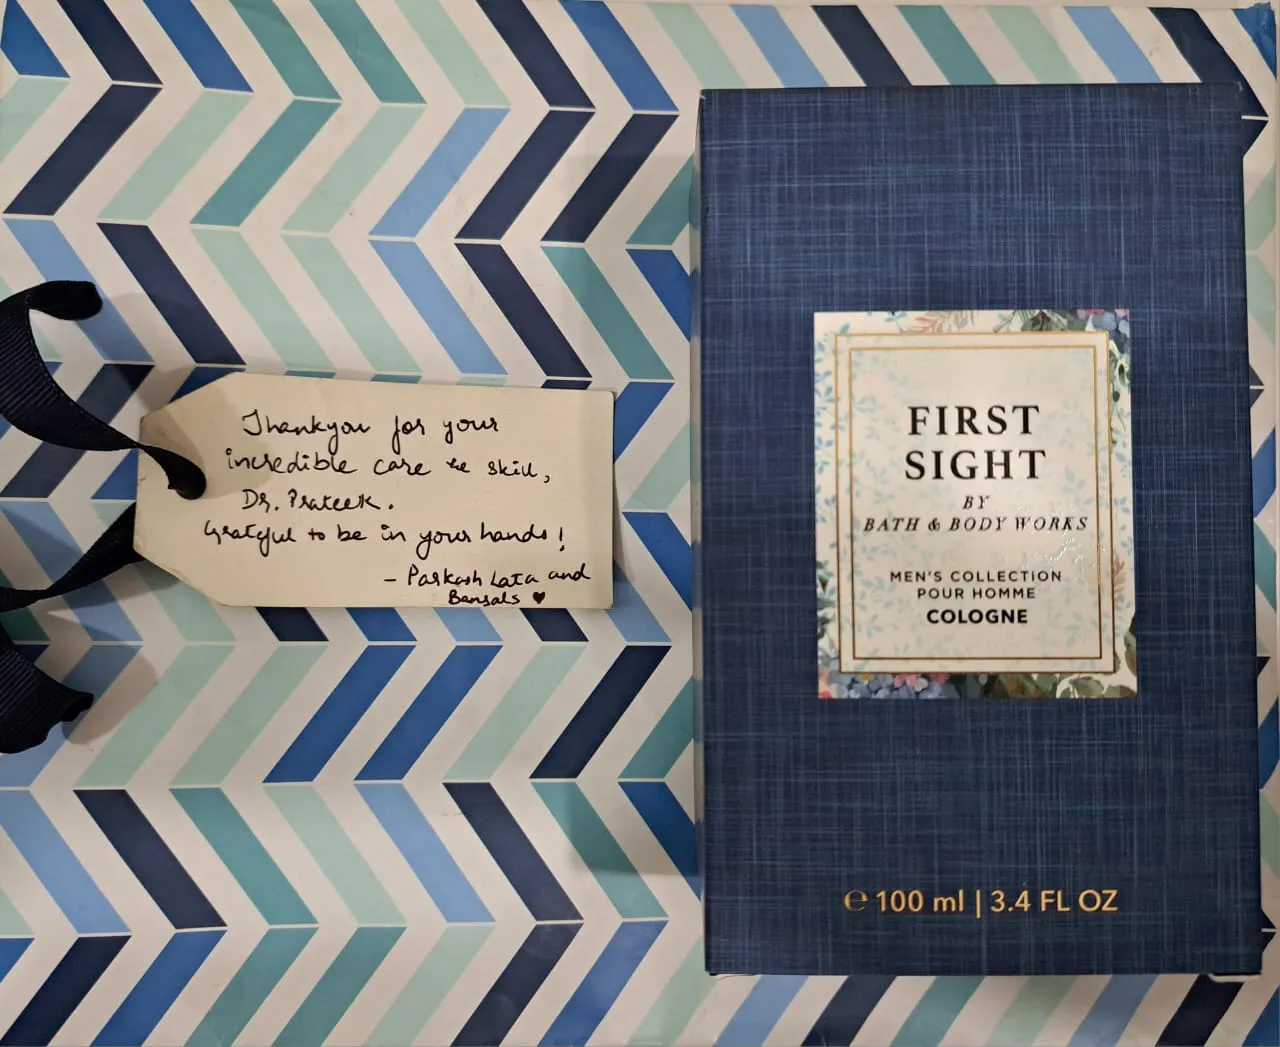 Thankyou for your
incredible care & skill,
Dr. Prateek.
Grateful to be in your hands!
- Parkash Lata and
Bansals ♥
FIRST
SIGHT
BY
BATH & BODY WORKS
MEN'S COLLECTION
POUR HOMME
COLOGNE
℮ 100 ml | 3.4 FL OZ